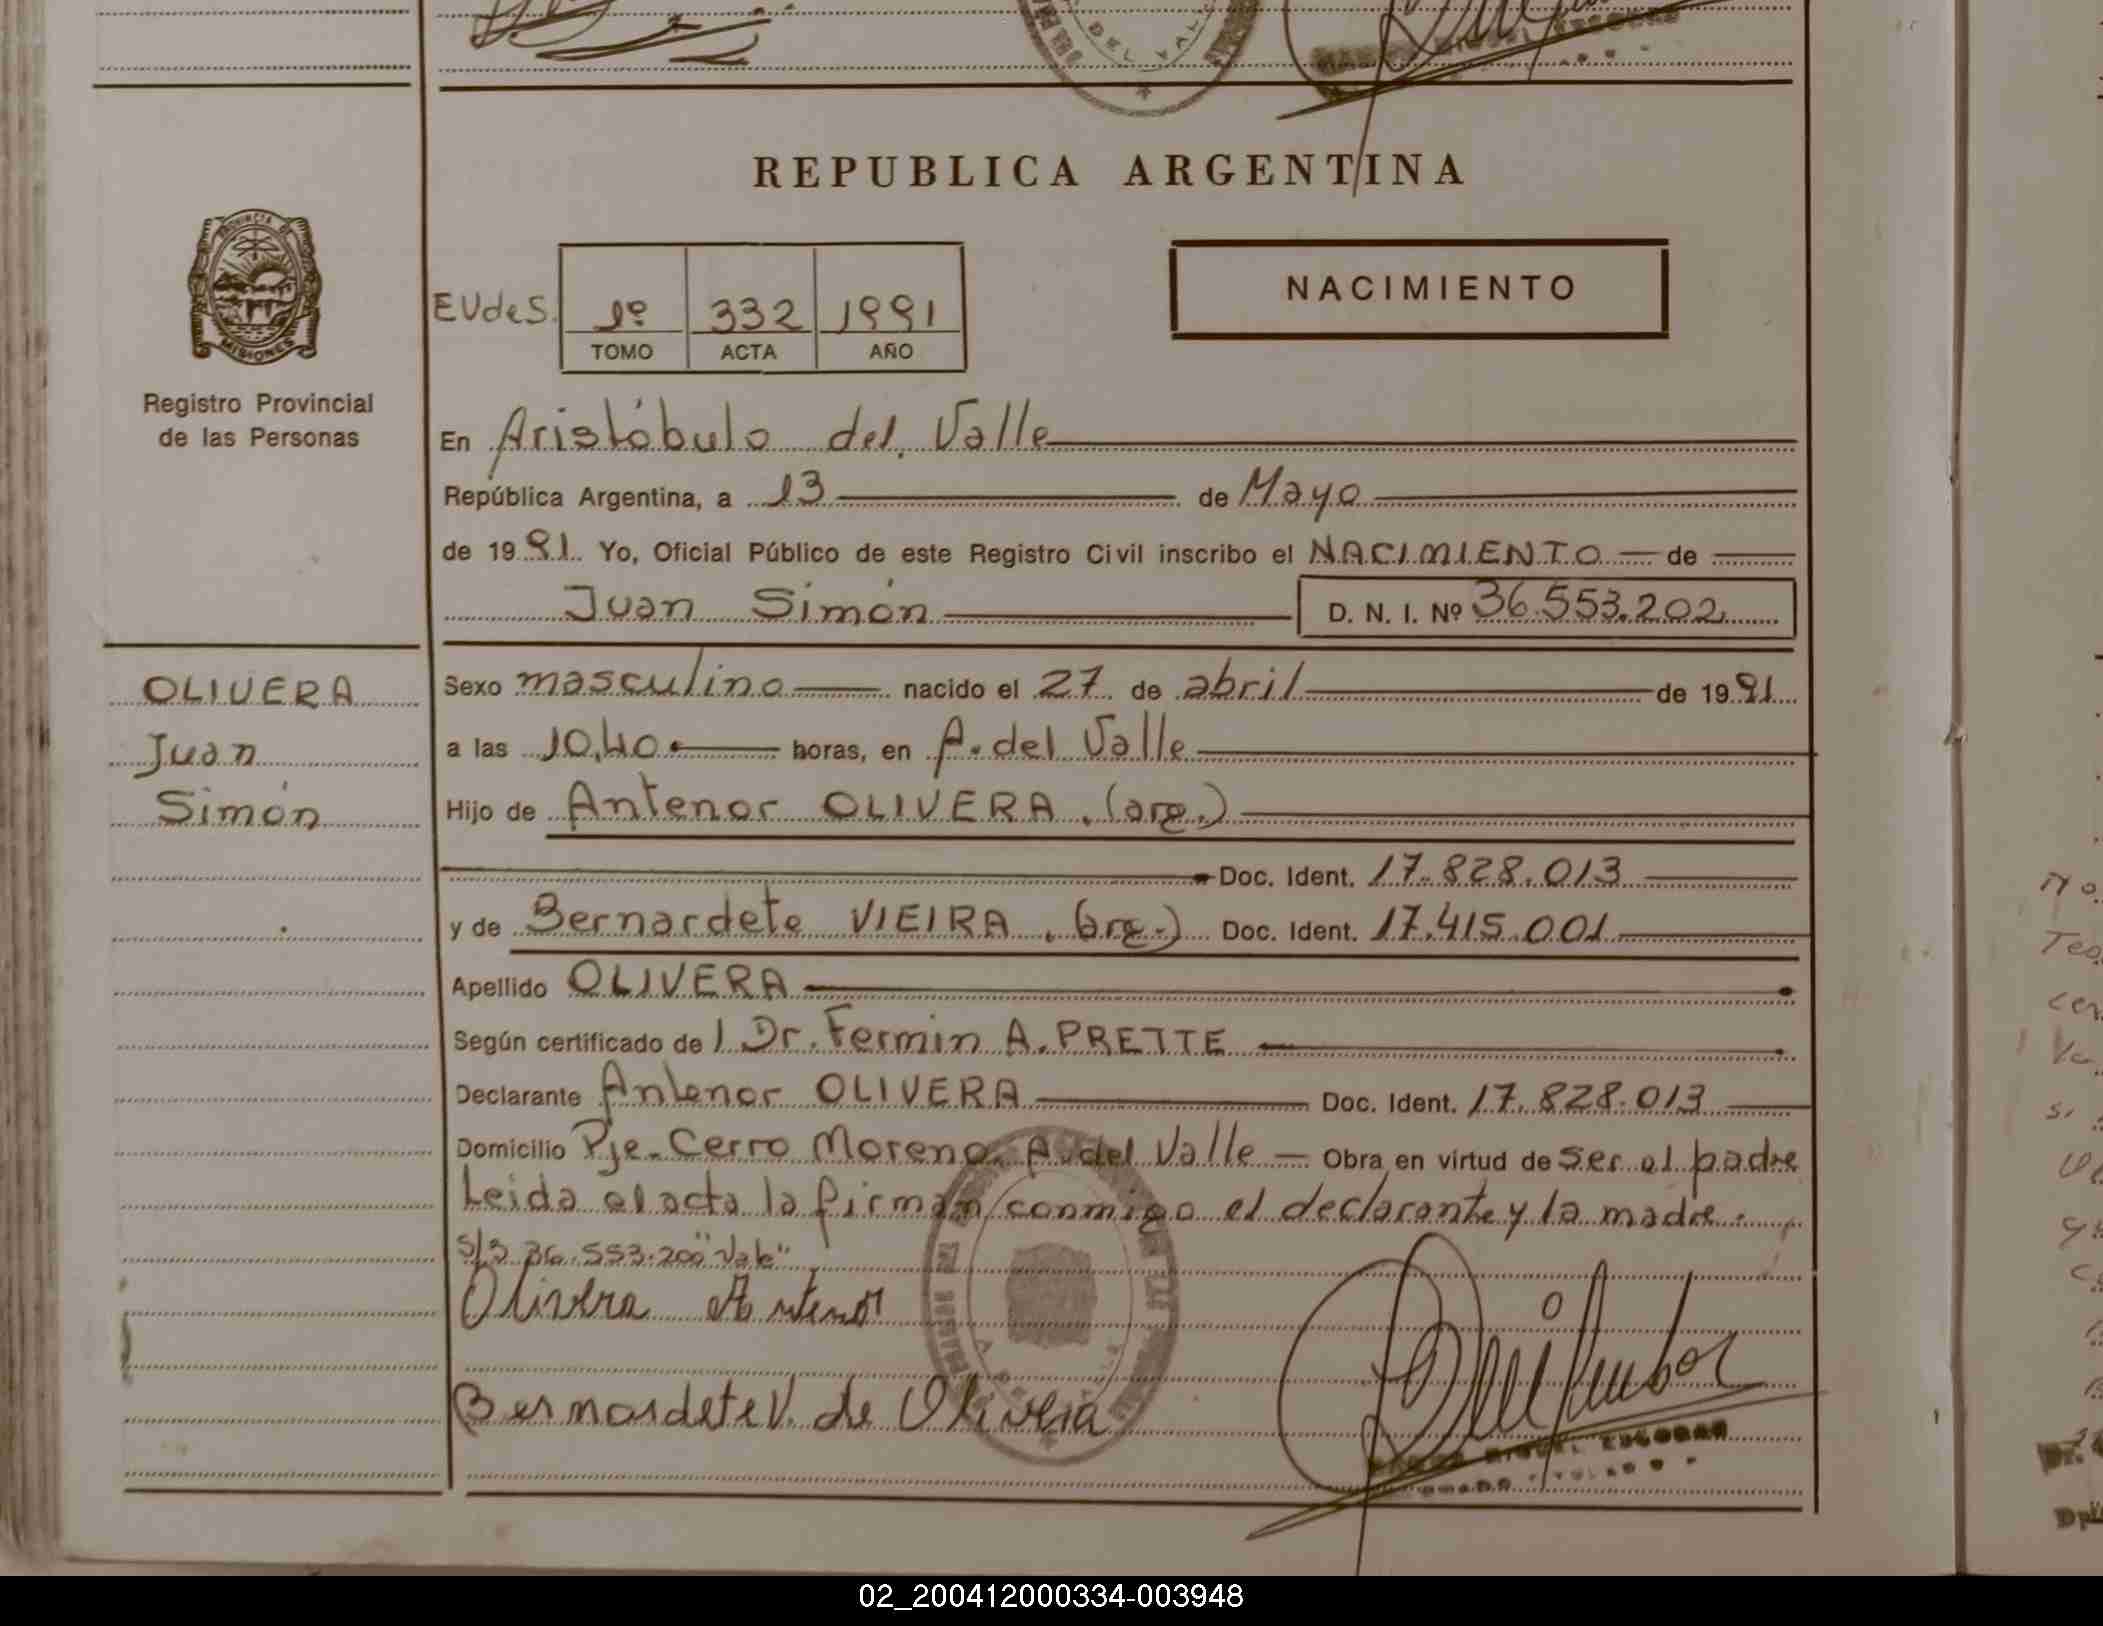 REPUBLICA ARGENTINA
PROVINCIA DE
MISIONES
Registro Provincial
de las Personas
NACIMIENTO
EVdeS. 1º 332 1991
TOMO ACTA AÑO
En Aristóbulo del Valle
República Argentina, a 13 de Mayo
de 1991 Yo, Oficial Público de este Registro Civil inscribo el NACIMIENTO de
Juan Simón D. N. I. Nº 36.553.202
OLIVERA
Juan
Simón
Sexo masculino nacido el 27 de abril de 1991
a las 10,40 horas, en A. del Valle
Hijo de Antenor OLIVERA. (arg.)
Doc. Ident. 17.828.013
y de Bernardete VIEIRA. (arg.) Doc. Ident. 17.415.001
Apellido OLIVERA
Según certificado de l Dr. Fermin A. PRETTE
Declarante Antenor OLIVERA Doc. Ident. 17.828.013
Domicilio Pje. Cerro Moreno. A. del Valle — Obra en virtud de ser el padre
Leida el acta la firman conmigo el declarante y la madre.
36.553.200 "Vale"
Olivera Antenor
Bernardete V. de Olivera
MIGUEL ESCOBAR
02_200412000334-003948